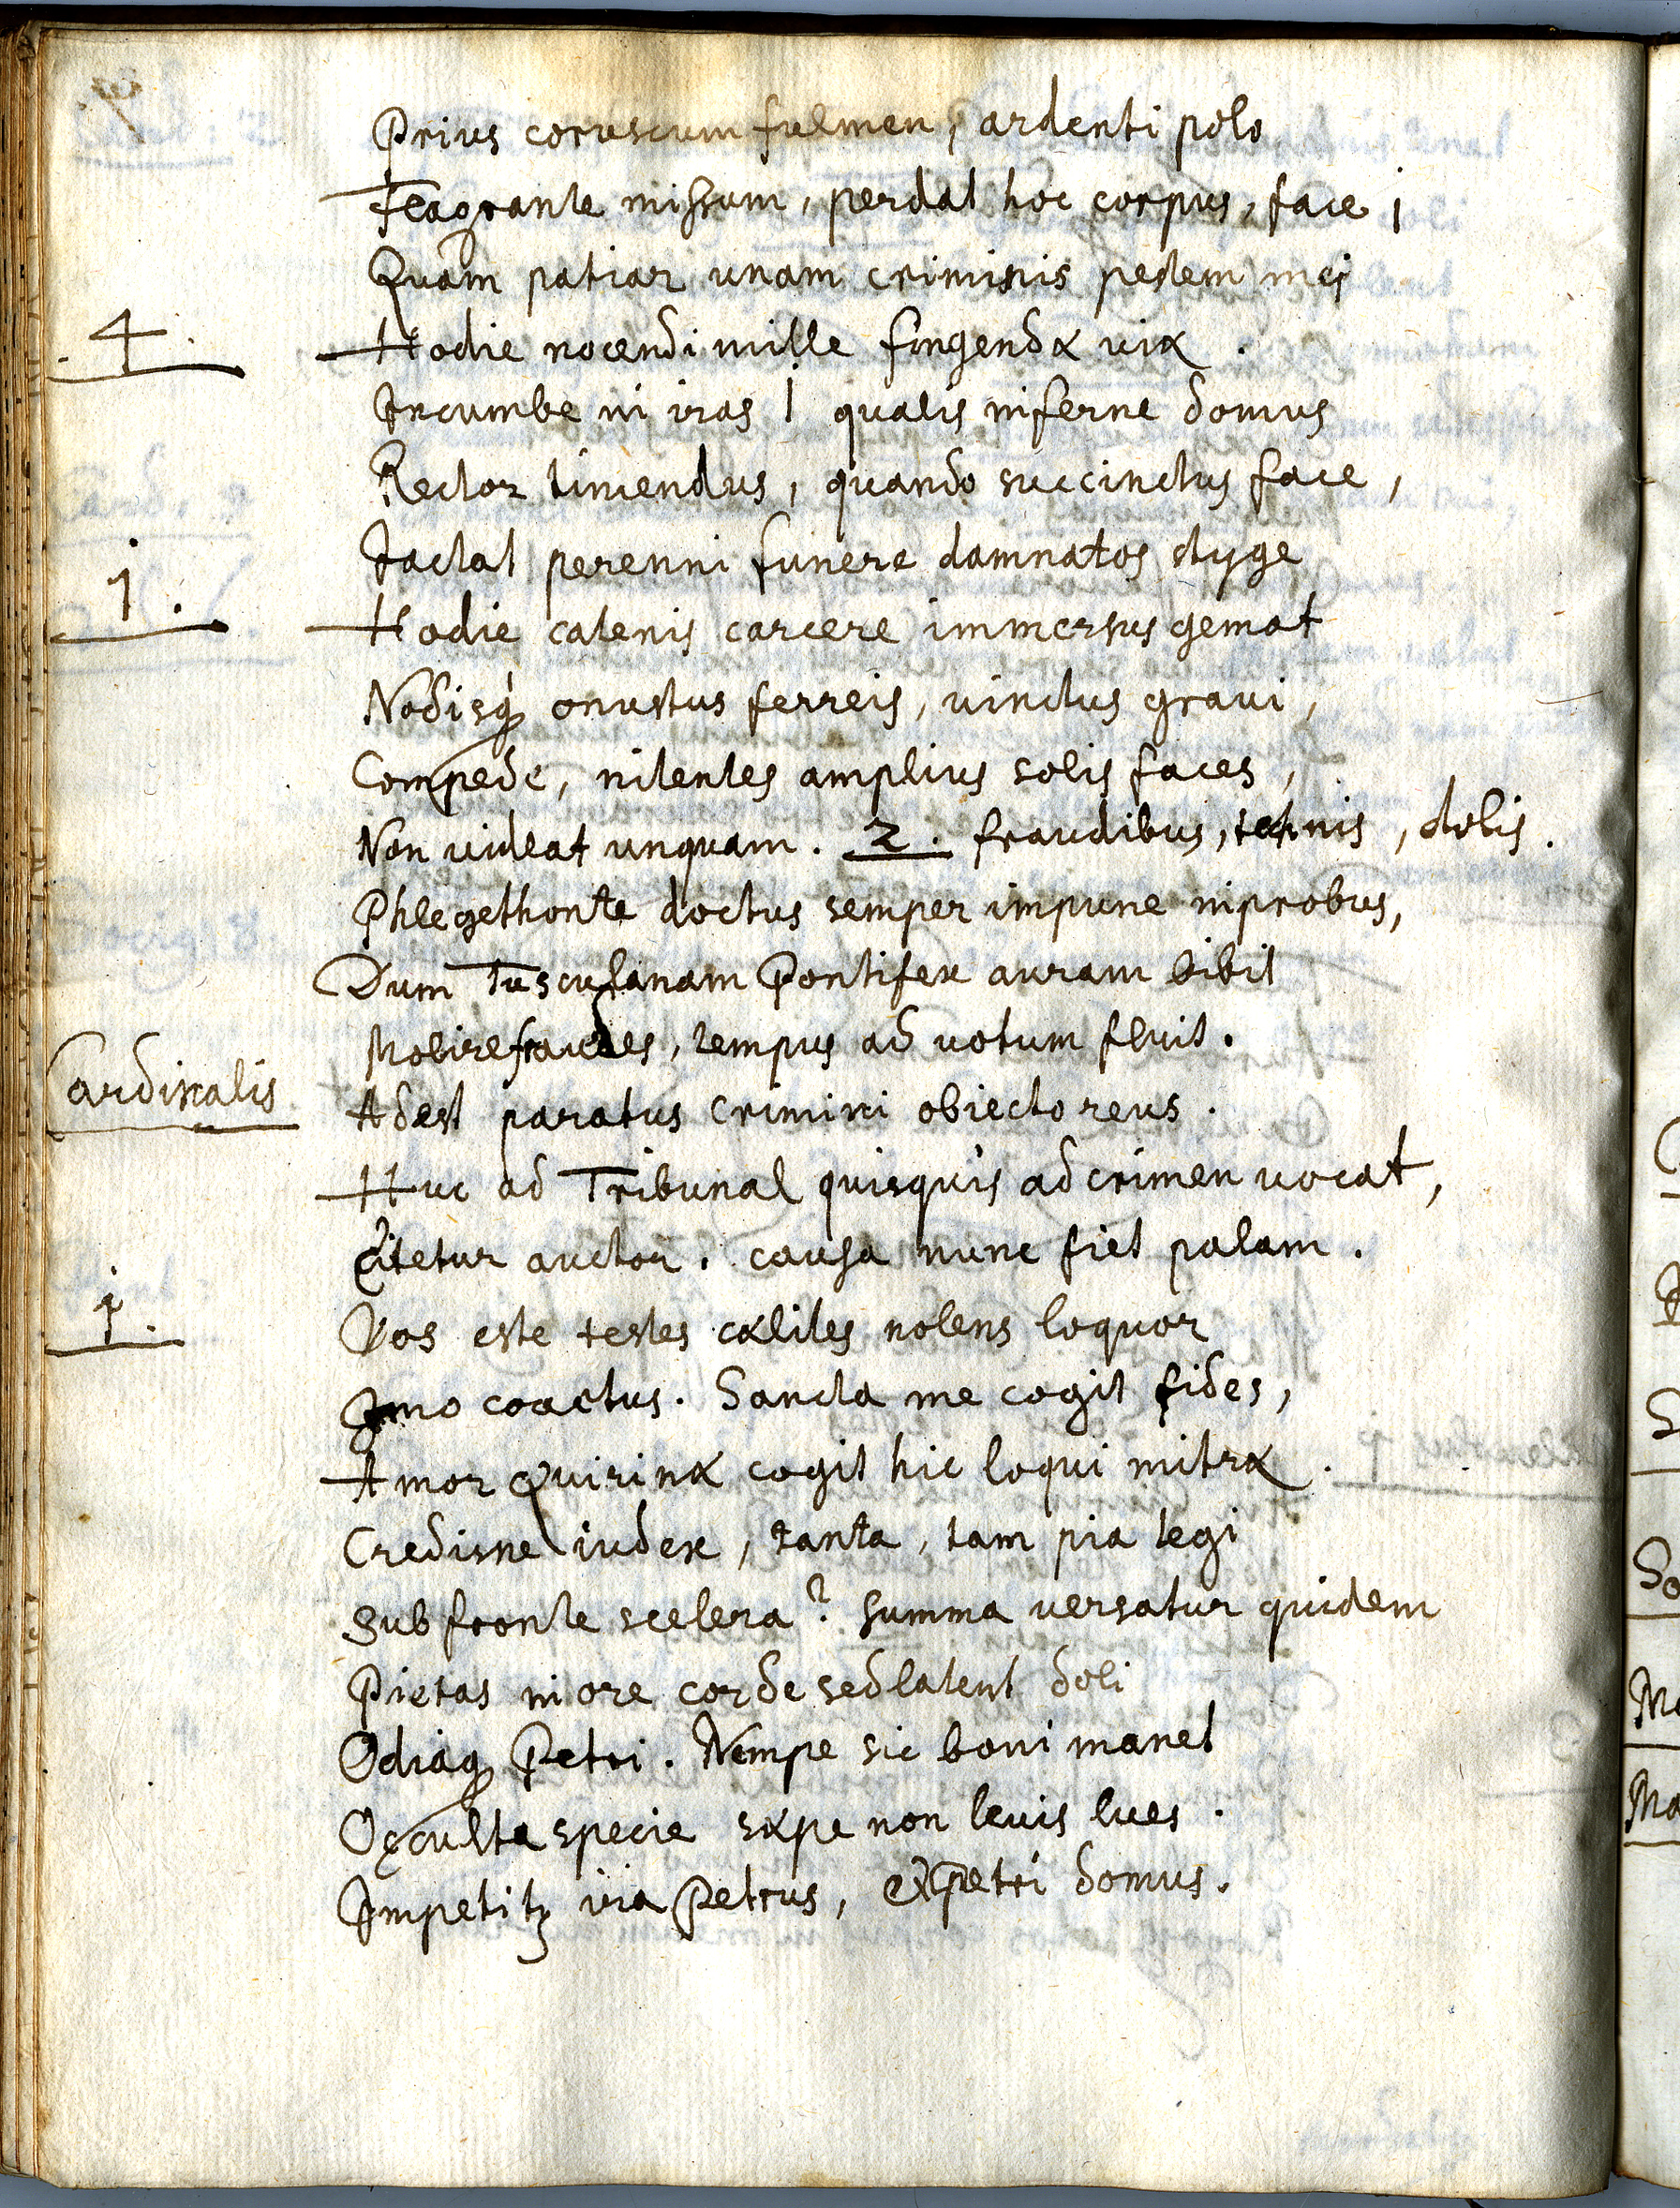 Prius coruscum fulmen, ardenti polo
Flagrante missum, perdat hoc corpus, face j
Quam patiar unam criminis pestem mej
4. Hodie nocendi mille fingendæ uiæ.
Incumbe in iras | qualis inferne domus
Rector timendus, quando succinctus face,
Jactat perenni funere damnatos styge
1. Hodie catenis carcere immersus gemat
Nodisq́ onustus ferreis, vinctus graui,
Compede, nitentes amplius solis faces,
Non uideat unquam. 2. fraudibus, technis, dolis.
Phlegethonte doctus semper impune improbus,
Dum Tusculanam Pontifex auram bibit
Molire fraudes, tempus ad uotum fluit.
Cardinalis Adest paratus crimini obiecto reus.
Huc ad Tribunal quisquis ad crimen vocat,
Citetur auctor. causa nunc fiet palam.
j. Vos este testes cælites nolens loquor
Imo coactus. Sancta me cogit fides,
Amor Quirinæ cogit hic loqui mitræ.
Credisne iudex, tanta, tam pia tegi
Sub fronte scelera? summa versatur quidem
Pietas in ore corde sed latent doli
Odiaq Petri. Nempe sic boni manet
Occulta specie sæpe non leuis lues.
Impetitꝫ ira Petrus, et Petri domus.